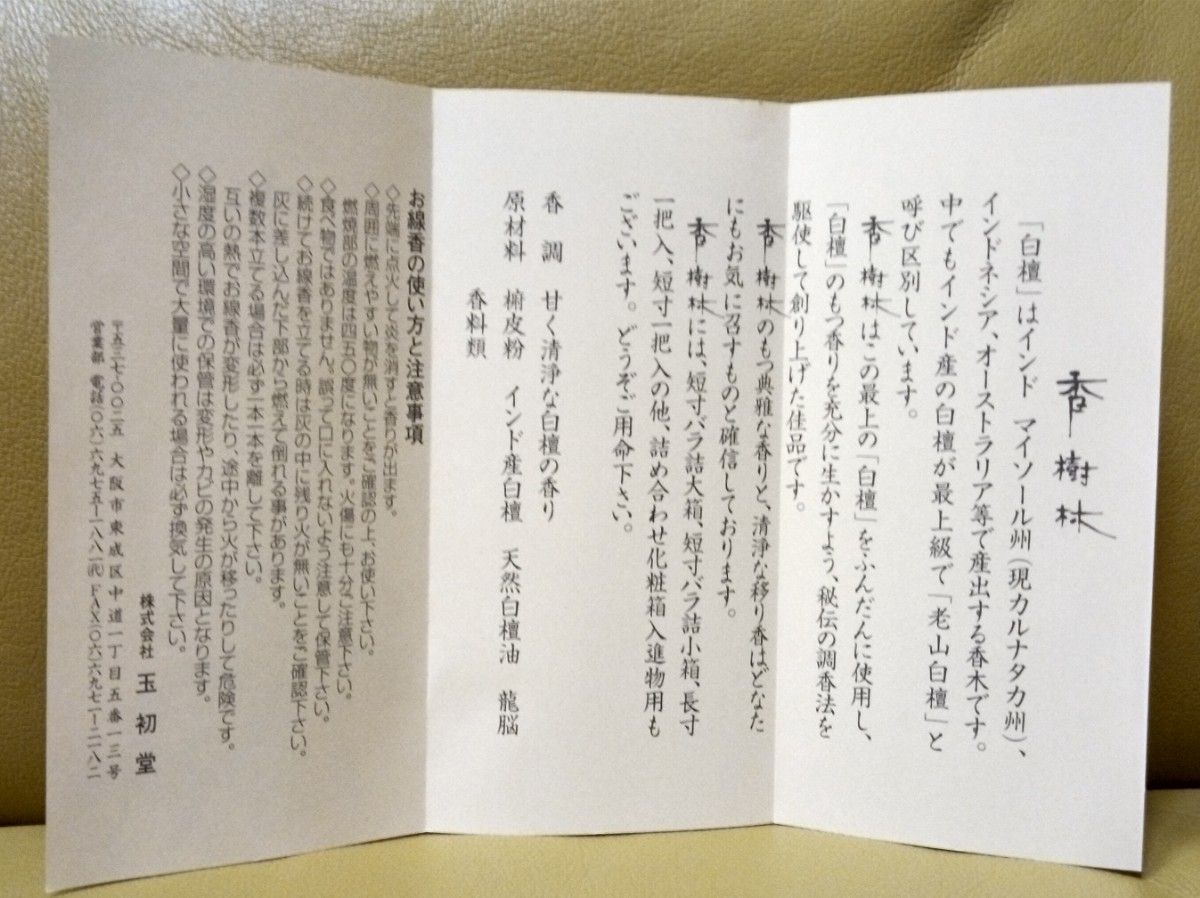 香樹林
「白檀」はインド　マイソール州（現カルナタカ州）、
インドネシア、オーストラリア等で産出する香木です。
中でもインド産の白檀が最上級で「老山白檀」と
呼び区別しています。
香樹林はこの最上の「白檀」をふんだんに使用し、
「白檀」のもつ香りを充分に生かすよう、秘伝の調香法を
駆使して創り上げた佳品です。
香樹林のもつ典雅な香りと、清浄な移り香はどなた
にもお気に召すものと確信しております。
香樹林には、短寸バラ詰大箱、短寸バラ詰小箱、長寸
一把入、短寸一把入の他、詰め合わせ化粧箱入進物用も
ございます。どうぞご用命下さい。
香　調　甘く清浄な白檀の香り
原材料　椨皮粉　インド産白檀　天然白檀油　龍脳
香料類
お線香の使い方と注意事項
◇先端に点火して炎を消すと香りが出ます。
◇周囲に燃えやすい物が無いことをご確認の上、お使い下さい。
燃焼部の温度は四五〇度になります。火傷にも十分ご注意下さい。
◇食べ物ではありません。誤って口に入れないよう注意して保管下さい。
◇続けてお線香を立てる時は灰の中に残り火が無いことをご確認下さい。
灰に差し込んだ下部から燃えて倒れる事があります。
◇複数本立てる場合は必ず一本一本を離して下さい。
互いの熱でお線香が変形したり、途中から火が移ったりして危険です。
◇湿度の高い環境での保管は変形やカビの発生の原因となります。
◇小さな空間で大量に使われる場合は必ず換気して下さい。
株式会社　玉初堂
〒五三七-〇〇二五　大阪市東成区中道一丁目五番一三号
営業部　電話〇六-六九七五-一八八一㈹　FAX〇六-六九七一-二一八二